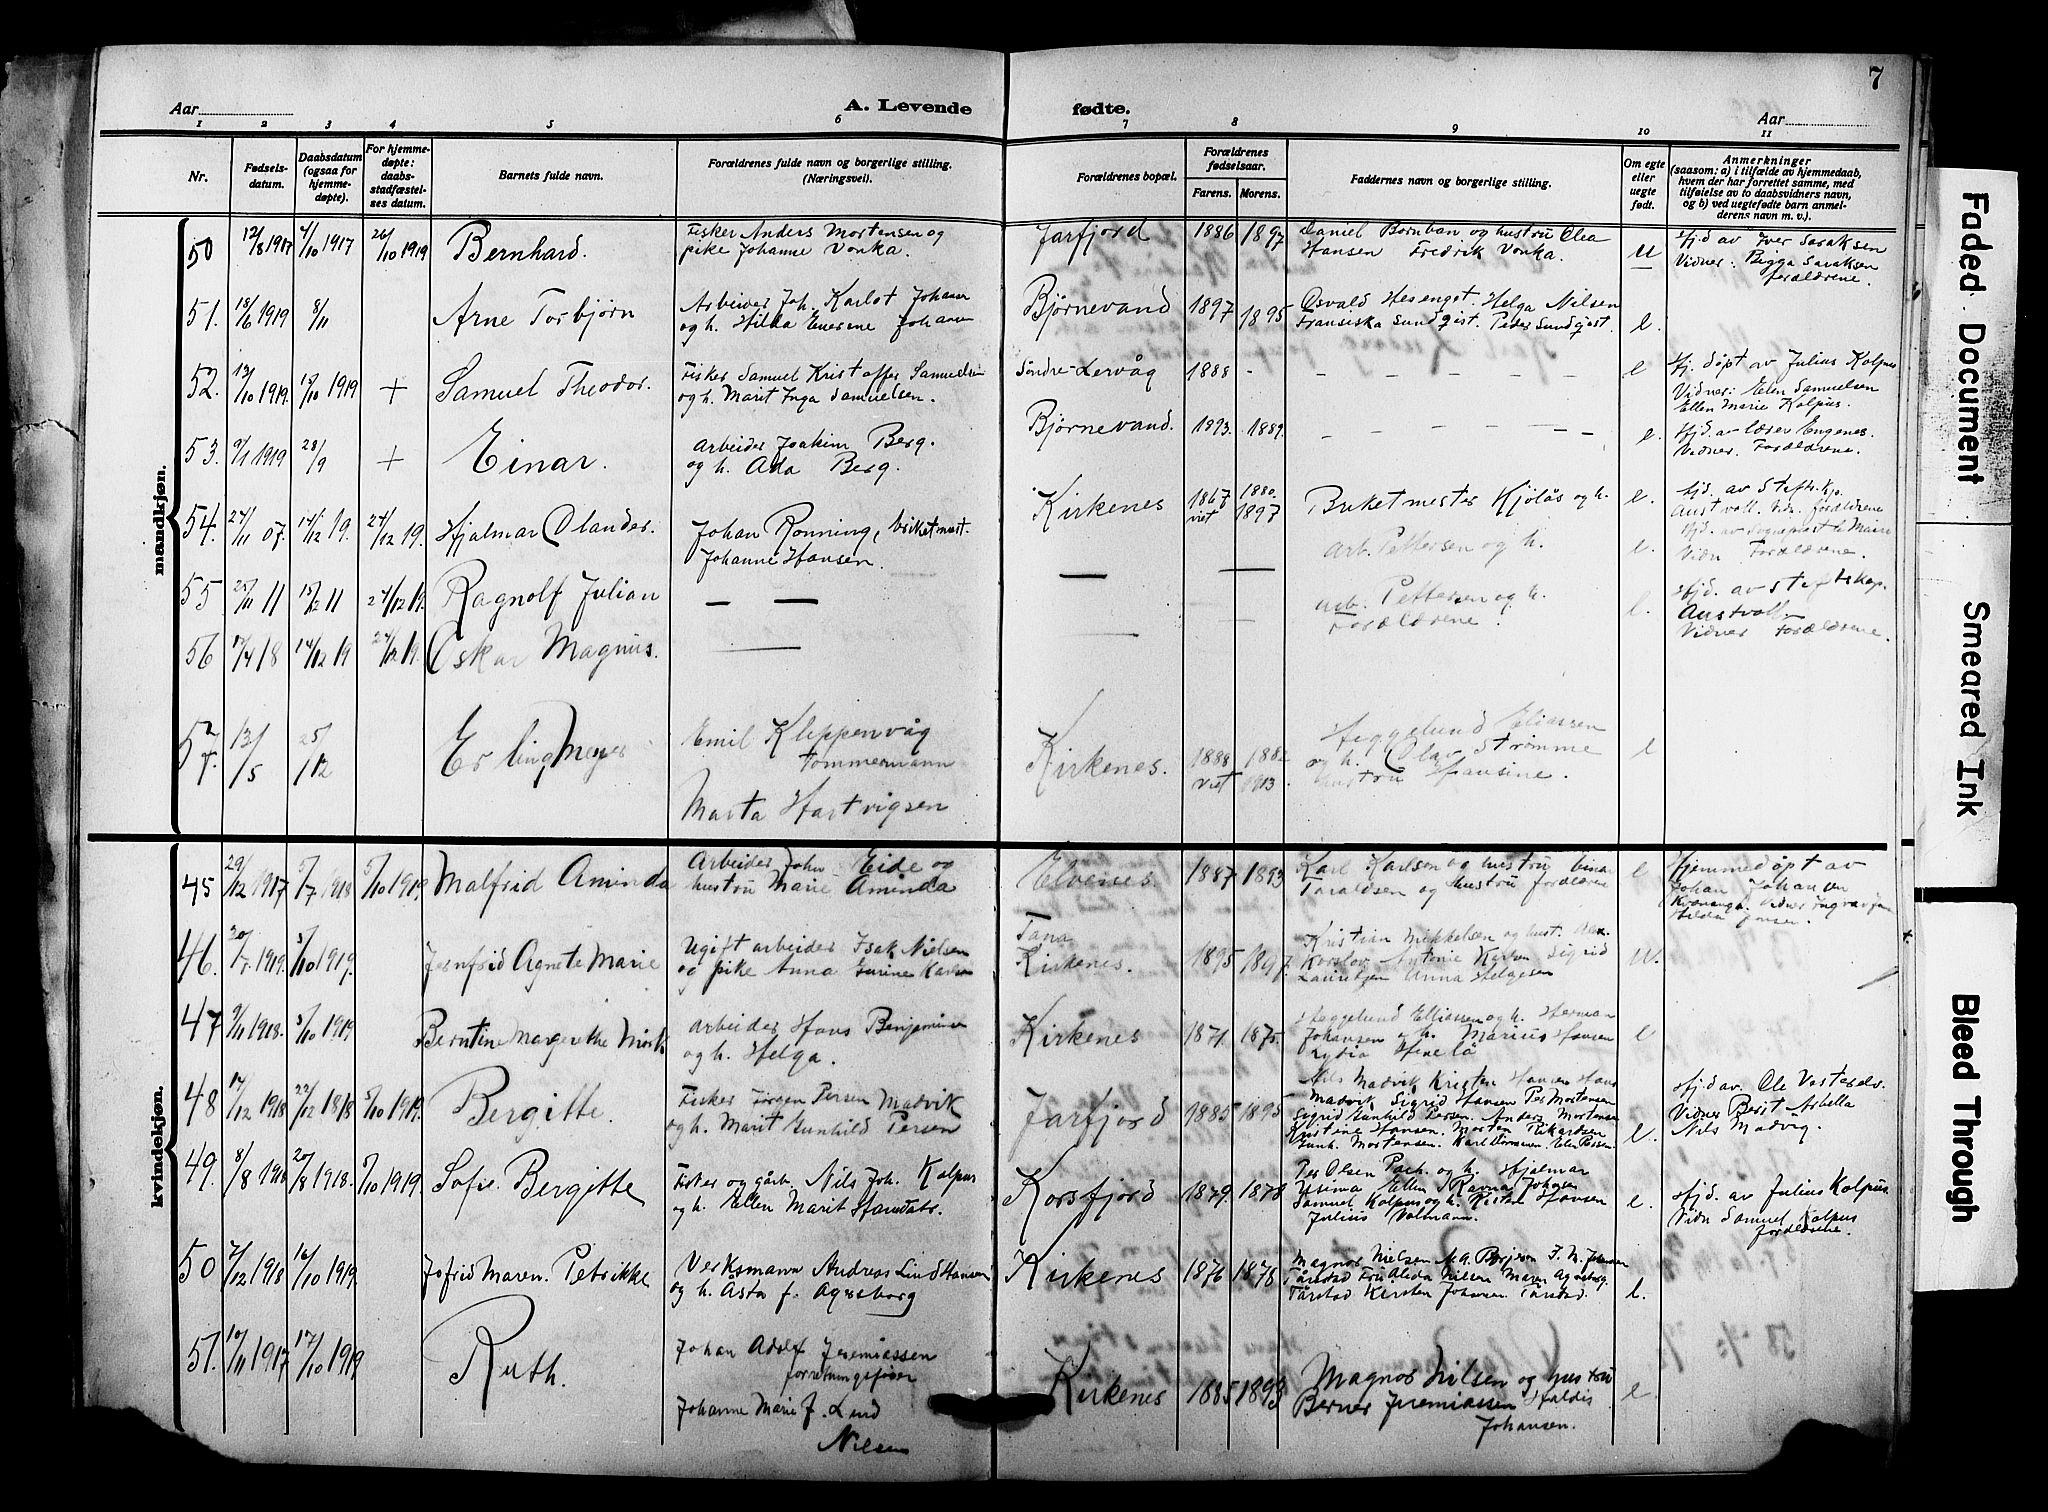 7
Aar
A. Levende
fødte.
Aar
1 2 3 4 5 6 7 8 9 10 11
Nr.
Fødsels-
datum.
Daabsdatum
(ogsaa for
hjemme-
døpte).
For hjemme-
døpte:
daabs-
stadfæstel-
ses datum.
Barnets fulde navn.
Forældrenes fulde navn og borgerlige stilling.
(Næringsvei).
Forældrenes bopæl.
Forældrenes
fødselsaar.
Farens. Morens.
Faddernes navn og borgerlige stilling.
Om egte
eller
uegte
født.
Anmerkninger
(saasom: a) i tilfælde av hjemmedaab,
hvem der har forrettet samme, med
tilføielse av to daabsvidners navn,
og b) ved uegtefødte barn anmel-
derens navn m. v.).
mandkjøn.
50 12/8 1917 7/10 1917 26/10 1919 Bernhard.
Fisker Anders Mortensen og
pike Johanne Vonka.
Jarfjord 1886 1897
Daniel Bornban og hustru Olea
Hansen Fredrik Vonka.
U
Hjd av Iver Saraksen
Vidner: Bigga Saraksen
forældrene.
51. 18/6 1919 8/11 Arne Torbjørn
Arbeider Joh. Karlot Johan
og h. Hilda Johan
Bjørnevand 1897 1895
Osvald Hesenget. Helga Nilsen
Fransiska Sundqist. Peder Sundqist.
e.
52. 13/10 1919. 15/10 1919 + Samuel Theodor.
Fisker Samuel Kristoffer Samuelsen
og h. Marit Inga Samuelsen.
Søndre-Lervåg 1888 - - - - - -
e
Hj. døpt av Julius Kolpus
Vidner: Elen Samuelsen
Ellen Marie Kolpus.
53. 9/1 1919 28/9 + Einar.
Arbeider Joakim Berg.
og h. Ada Berg.
Bjørnevand. 1893. 1889. - - - - - -
e.
Hjd. av lærer Engenes.
Vidner. Forældrene.
54. 24/11 07. 14/12 19. 24/12 19. Hjalmar Olander.
Johan Rønning, brikétmest.
Johanne Hansen.
Kirkenes 1867 1880.
viet 1897
Briketmester Kjølås og h.
e.
Hjd. av Stiftskp.
Austvoll. Vid. forældrene
55 25/11 11 15/12 11 24/12 19. Ragnolf Julian
— —
Arb. Pettersen og h.
e.
Hjd. av sogneprest
Vidn Forældrene.
56 17/4 18 14/12 19 24/12 19. Oskar Magnus.
arb. Pettersen og h.
Forældrene.
e.
Hjd. av Stiftskap.
Austvoll.
Vidner Forældrene.
57. 13/5 25/12 Erling Meyer
Emil Kleppenvåg
Tømmermann
Marta Hartvigsen
Kirkenes. 1888 1882
viet 1913
Heggelund Eliassen
og h. Olav Strømme
hustru Hansine.
e
kvindekjøn.
45 29/12 1917 5/7 1918 5/10 1919 Malfrid Aminda
Arbeider John Eide og
hustru Marie Aminda
Elvenes. 1887 1893
Karl Karlson og hustru Einar
Taraldsen og hustru forældrene
e
Hjemmedøpt av
Johan Johansen
46. 20/7 1919. 5/10 1919. Jernfrid Agnete Marie
Ugift arbeider Isak Nielsen
og pike Anna Gurine
Tana
Kirkenes. 1895 1897.
Kristian Mikkelsen og hust.
Antonie Sigrid
Lauritzen Anna Helgesen
U.
47 9/11 1918. 5/10 1919 Berntine Margrethe Mørk
Arbeider Hans Benjamin
og h. Helga.
Kirkenes 1871. 1875.
Heggelund Elliassen og h. Herman
Johansen og h. Marius Hansen
Lydia
e
48 17/12 1918 22/12 1818 5/10 1919. Bergitte.
Fisker Jørgen Persen Madvik
og h. Marit Gunhild Persen
Jarfjord 1885 1895
Nils Madvik Kristen Hansen Hans
Madvik Sigrid Hansen Per Mortensen
Sigrid Gunhild Persen. Anders Mortensen
Kristine Hansen. Morten Rikardsen
Gunh. Mortensen.
e.
Hjd av. Ole Vesterelv.
Vidner Berit Arbella
Nils Madvig.
49. 8/8 1918 20/8 1918. 5/10 1919. Sofie Bergitte
Fisker og gårb. Nils Joh. Kolpus
og h. Ellen Marit
Korsfjord 1879. 1878
Per Olsen og h. Hjalmar
Ellen Ravna Johansen
Samuel Kolpus og h. Hansen
Julius Volmann.
e.
Hjd. av Julius Kolpus.
Vidn Samuel Kolpus
forældrene.
50 7/12 1918 16/10 1919. Jofrid Maren. Petrikke
Verksmann Andreas Lind Hansen
og h. Åsta f. Agersborg
Kirkenes 1876 1878
Magnor Nielsen
Tårstad Fru Alida Nilsen Maren Agersborg
Tårstad Kirsten Johansen Tårstad.
e.
51. 10/11 1917 17/10 1919 Ruth.
Johan Adolf Jeremiassen
forretningsfører
Johanne Marie f. Lund
Nilsen
Kirkenes 1885 1893
Magnor Nilsen og hustru
Berner Jeremiassen Haldis
Johansen.
e.
Faded Document
Smeared Ink
Bleed Through